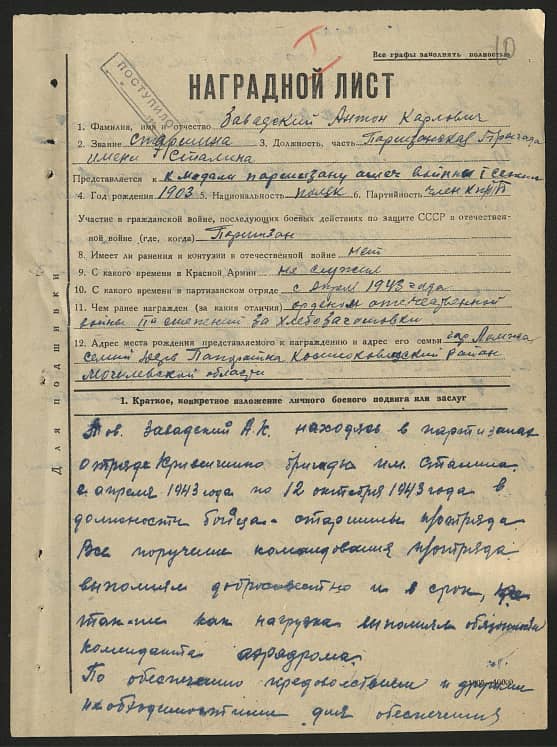 Все графы заполнять полностью
10
I
ПОСТУПИЛО
НАГРАДНОЙ ЛИСТ
1. Фамилия, имя и отчество Завадский Антон Карлович
2. Звание Старшина 3. Должность, часть Партизанская Бригада
имени Сталина
Представляется к к медали партизану отеч войны I степени
4. Год рождения 1903 5. Национальность поляк 6. Партийность член
Участие в гражданской войне, последующих боевых действиях по защите СССР в отечествен-
ной войне (где, когда) Партизан
8. Имеет ли ранения и контузии в отечественной войне нет
9. С какого времени в Красной Армии не служил
10. С какого времени в партизанском отряде с апрел 1943 года
11. Чем ранее награжден (за какия отличия) орденом отечественной
войны II степени за Хлебозаготовки
12. Адрес места рождения представляемого к награждению и адрес его семьи гор Ломжа
семия район
Могилевской области
Для подшивки
1. Краткое, конкретное изложение личного боевого подвига или заслуг
Тов. Завадский А.К. находясь в партизанск
отряде бригады им. Сталина
с апреля 1943 года по 12 октября 1943 года в
должности бойца - старшины протряда
Все поручение командования протряда
выполнял добросовестно и в срок,
так-же как нагрузка выполнял обязанности
коменданта аэродрома.
По обеспечению продовольствием и другими
необходимостими для обеспечения